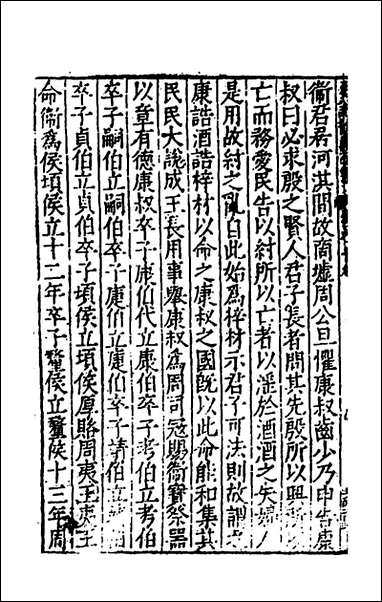 衞君居河淇間故商墟周公旦懼康叔齒少乃申告康
叔曰必求殷之賢人君子長者問其先殷所以興所以
亡而務愛民告以紂所以亡者以淫於酒酒之失婦人
是用故紂之亂自此始為梓材示君子可法則故謂之
康誥酒誥梓材以命之康叔之國旣以此命能和集其
民民大說成王長用事舉康叔為周司寇賜衞寶祭器
以章有德康叔卒子康伯代立康伯卒子考伯立考伯
卒子嗣伯立嗣伯卒子㨗伯立㨗伯卒子靖伯立靖伯
卒子貞伯立貞伯卒子頃侯立頃侯厚賂周夷王夷王
命衞為侯頃侯立十二年卒子釐侯立釐侯十三年周